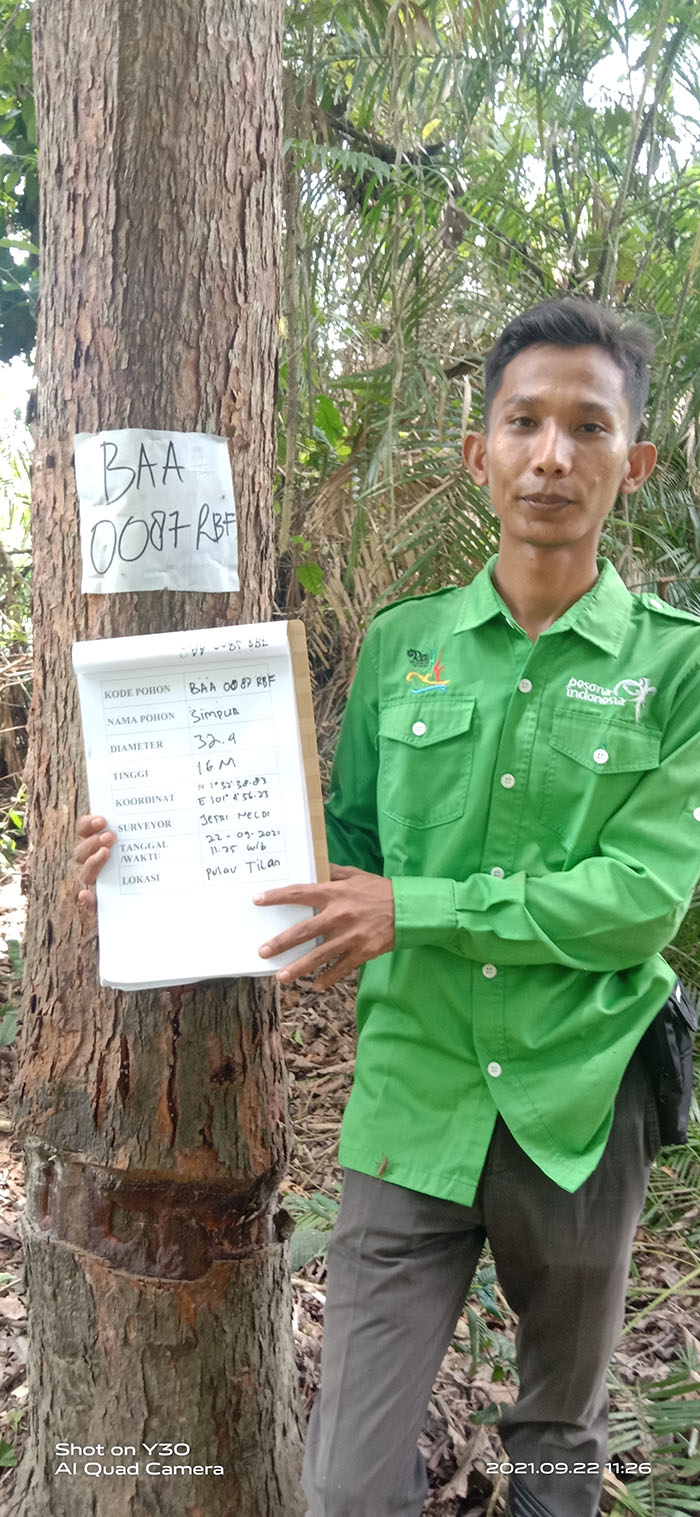 BAA
0087 RBF
KODE POHON BAA 0087 RBF
NAMA POHON Simpur
DIAMETER 32.4
TINGGI 16 M
KOORDINAT N 1°52'38.83
E 101°4'56.23
SURVEYOR JEFRI MELDI
TANGGAL /WAKTU 22-09-2021
11.25 wib
LOKASI Pulau Tilan
pesona
indonesia
Shot on Y30
AI Quad Camera
2021.09.22 11:26